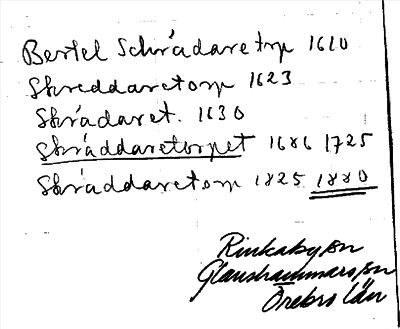 Bertel Schrädaretorp 1610
Skreddaretorp 1623
Skrädaret. 1630
Skräddaretorpet 1686 1725
Skräddaretorp 1825 1880
Rinkaby sn
Glanshammars sn
Örebro län